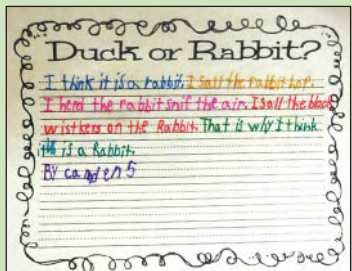 Duck or Rabbit?
I think it is a rabbit. I sall the rabbit hop.
I herd the rabbit snif the air. I sall the black
wistkers on the Rabbit. That is why I think
it is a Rabbit.
By camden 5